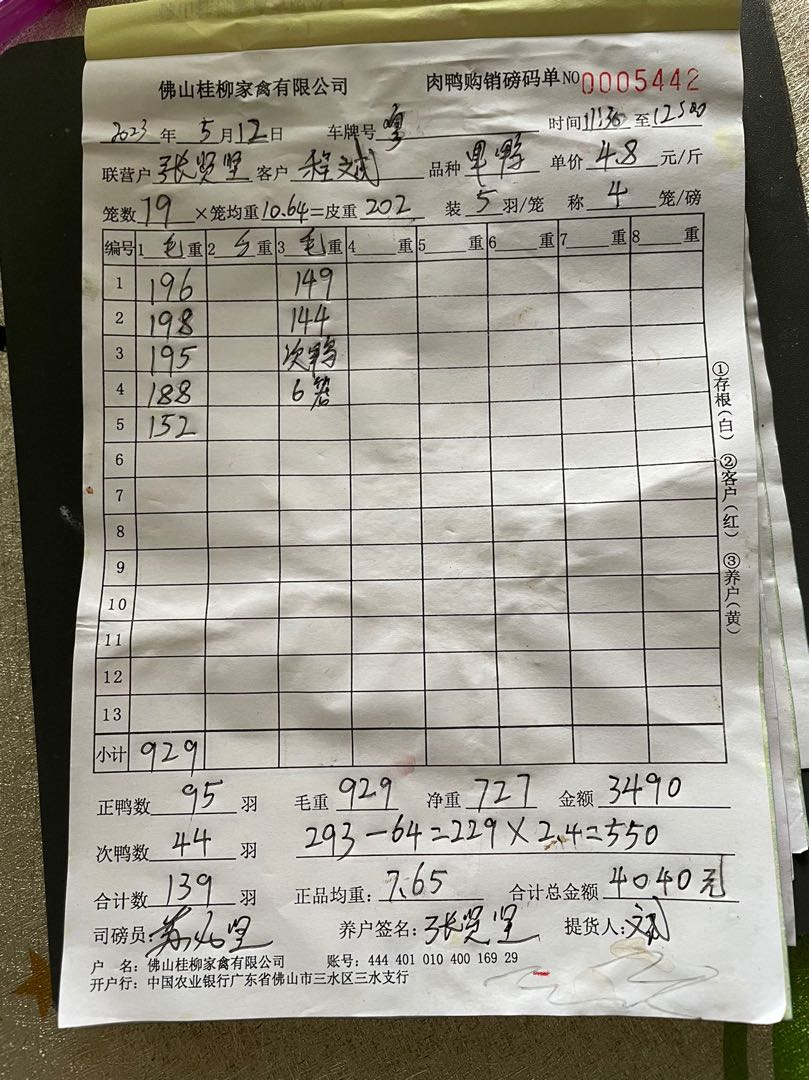 佛山桂柳家禽有限公司 肉鸭购销磅码单 NO 0005442
2023年5月12日 车牌号 时间11:30至12:50
联营户 张贤坚 客户 程文斌 品种 单价4.8元/斤
笼数19×笼均重10.64=皮重202 装5羽/笼 称4笼/磅
编号 1毛重 2重 3毛重 4重 5重 6重 7重 8重
1 196 149
2 198 144
3 195 次鸭
4 188 6笼
5 152
6
7
8
9
10
11
12
13
小计 929
正鸭数95羽 毛重929 净重727 金额3490
次鸭数44羽 293-64=229×2.4=550
合计数139羽 正品均重:7.65 合计总金额4040元
司磅员: 养户签名:张贤坚 提货人:文斌
户 名:佛山桂柳家禽有限公司 账号:444 401 010 400 169 29
开户行:中国农业银行广东省佛山市三水区三水支行
①存根(白) ②客户(红) ③养户(黄)